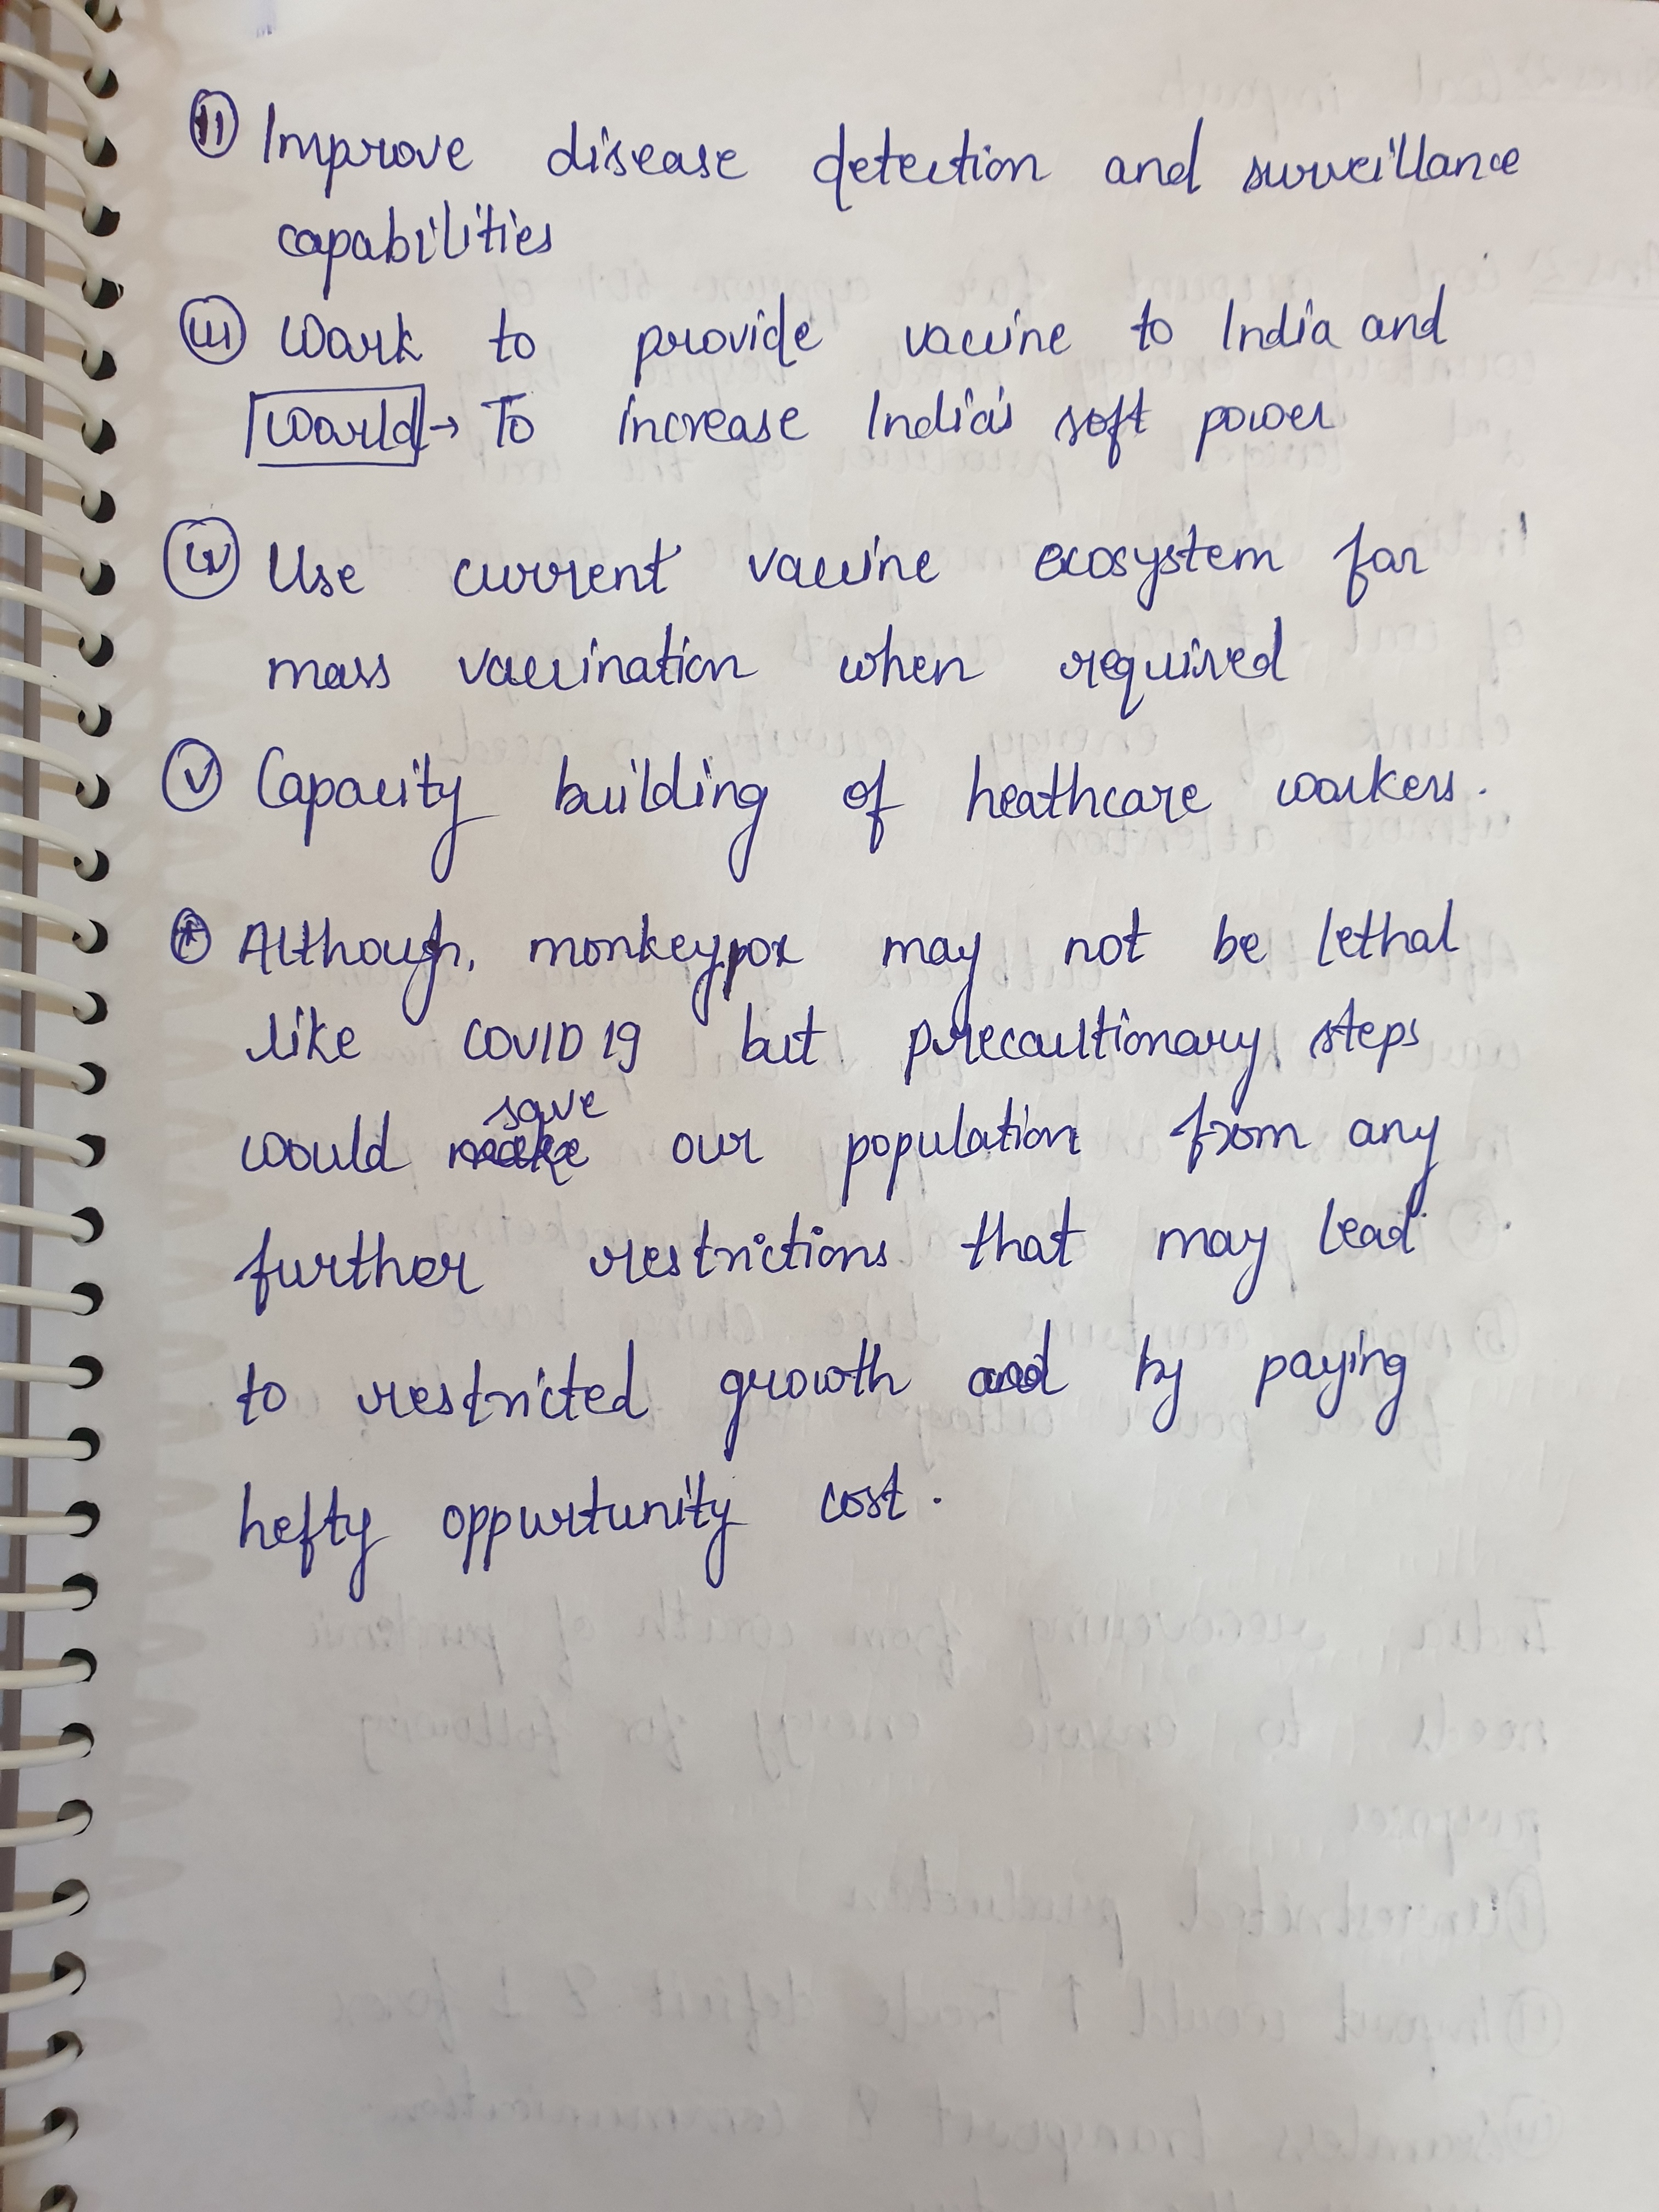 (ii) Improve disease detection and surveillance
capabilities
(iii) Work to provide vaccine to India and
World → To increase India's soft power
(iv) Use current vaccine ecosystem for
mass vaccination when required
(v) Capacity building of heathcare workers.
* Although, monkeypox may not be lethal
like COVID 19 but precautionary steps
would save our population from any
further restrictions that may lead
to restricted growth and by paying
hefty oppurtunity cost.